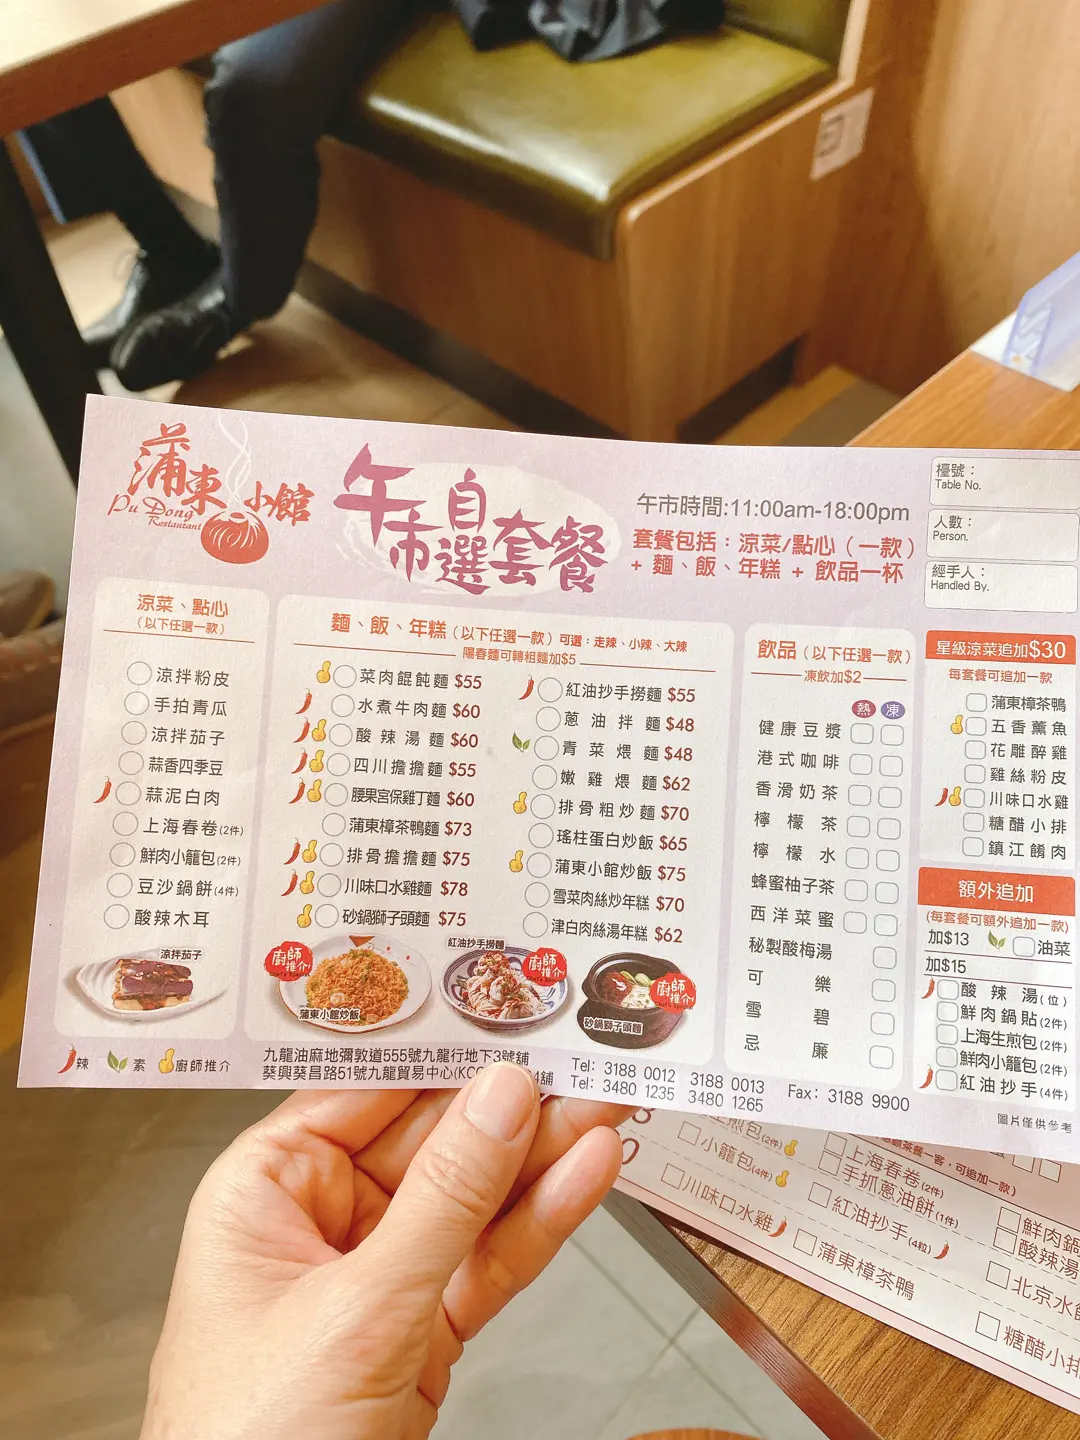 蒲東小館
Pu Dong
Restaurant
午市自選套餐
午市時間:11:00am-18:00pm
套餐包括：涼菜/點心（一款）
+ 麵、飯、年糕 + 飲品一杯
檯號：
Table No.
人數：
Person.
經手人：
Handled By.
涼菜、點心
（以下任選一款）
涼拌粉皮
手拍青瓜
涼拌茄子
蒜香四季豆
蒜泥白肉
上海春卷(2件)
鮮肉小籠包(2件)
豆沙鍋餅(4件)
酸辣木耳
涼拌茄子
麵、飯、年糕（以下任選一款）可選：走辣、小辣、大辣
陽春麵可轉粗麵加$5
菜肉餛飩麵 $55
水煮牛肉麵 $60
酸辣湯麵 $60
四川擔擔麵 $55
腰果宮保雞丁麵 $60
蒲東樟茶鴨麵 $73
排骨擔擔麵 $75
川味口水雞麵 $78
砂鍋獅子頭麵 $75
紅油抄手撈麵 $55
蔥油拌麵 $48
青菜煨麵 $48
嫩雞煨麵 $62
排骨粗炒麵 $70
瑤柱蛋白炒飯 $65
蒲東小館炒飯 $75
雪菜肉絲炒年糕 $70
津白肉絲湯年糕 $62
廚師推介
Chef's Special
蒲東小館炒飯
紅油抄手撈麵
廚師推介
砂鍋獅子頭麵
廚師推介
飲品（以下任選一款）
凍飲加$2
熱 凍
健康豆漿
港式咖啡
香滑奶茶
檸檬茶
檸檬水
蜂蜜柚子茶
西洋菜蜜
秘製酸梅湯
可樂
雪碧
忌廉
星級涼菜追加$30
每套餐可追加一款
蒲東樟茶鴨
五香薰魚
花雕醉雞
雞絲粉皮
川味口水雞
糖醋小排
鎮江餚肉
額外追加
(每套餐可額外追加一款)
加$13 油菜
加$15
酸辣湯(位)
鮮肉鍋貼(2件)
上海生煎包(2件)
鮮肉小籠包(2件)
紅油抄手(4件)
圖片僅供參考
辣 素 廚師推介
九龍油麻地彌敦道555號九龍行地下3號舖
葵興葵昌路51號九龍貿易中心(KCC
4舖
Tel: 3188 0012 3188 0013
Tel: 3480 1235 3480 1265
Fax: 3188 9900
煎包(2件)
小籠包(4件)
川味口水雞
上海春卷(2件)
手抓蔥油餅(1件)
紅油抄手(4粒)
蒲東樟茶鴨
茶餐一客，可追加一款)
鮮肉鍋
酸辣湯
北京水
糖醋小排